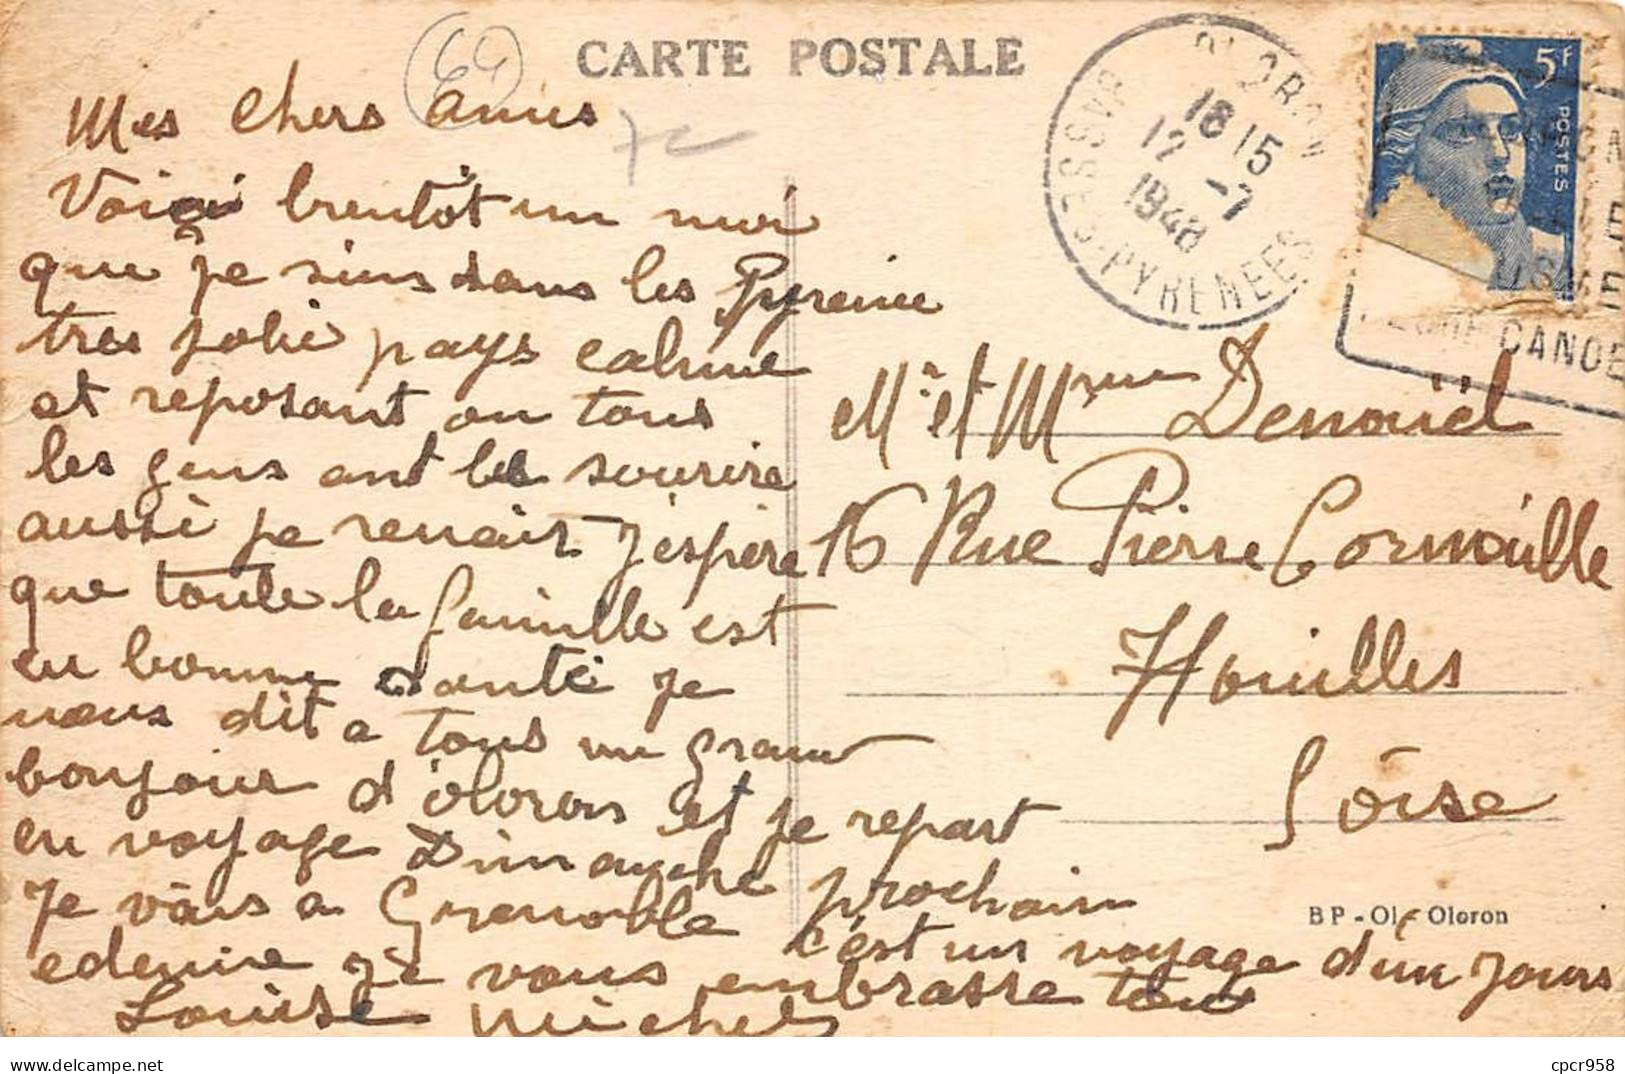 CARTE POSTALE
64
Mes chers amis
Voici bientôt un moi
que je suis dans les Pyrenée
tres jolie pays calme
et reposant ou tous
les gens ont le sourire
aussi je renais j'espère
que toute la famille est
en bonne santé je
vous dit a tous un grand
bonjour d'oloron et je repart
en voyage Dimanche prochain
Je vais a Grenoble c'est un voyage d'un jours
edemie je vous embrasse tous
Louise Michel
OLORON
18 15
12 -7
1948
BASSES-PYRENEES
5F
POSTES
CANOE
Mr et Mme Denouel
16 Rue Pierre Cornouille
Houilles
S Oise
BP - Ol - Oloron
cpcr958